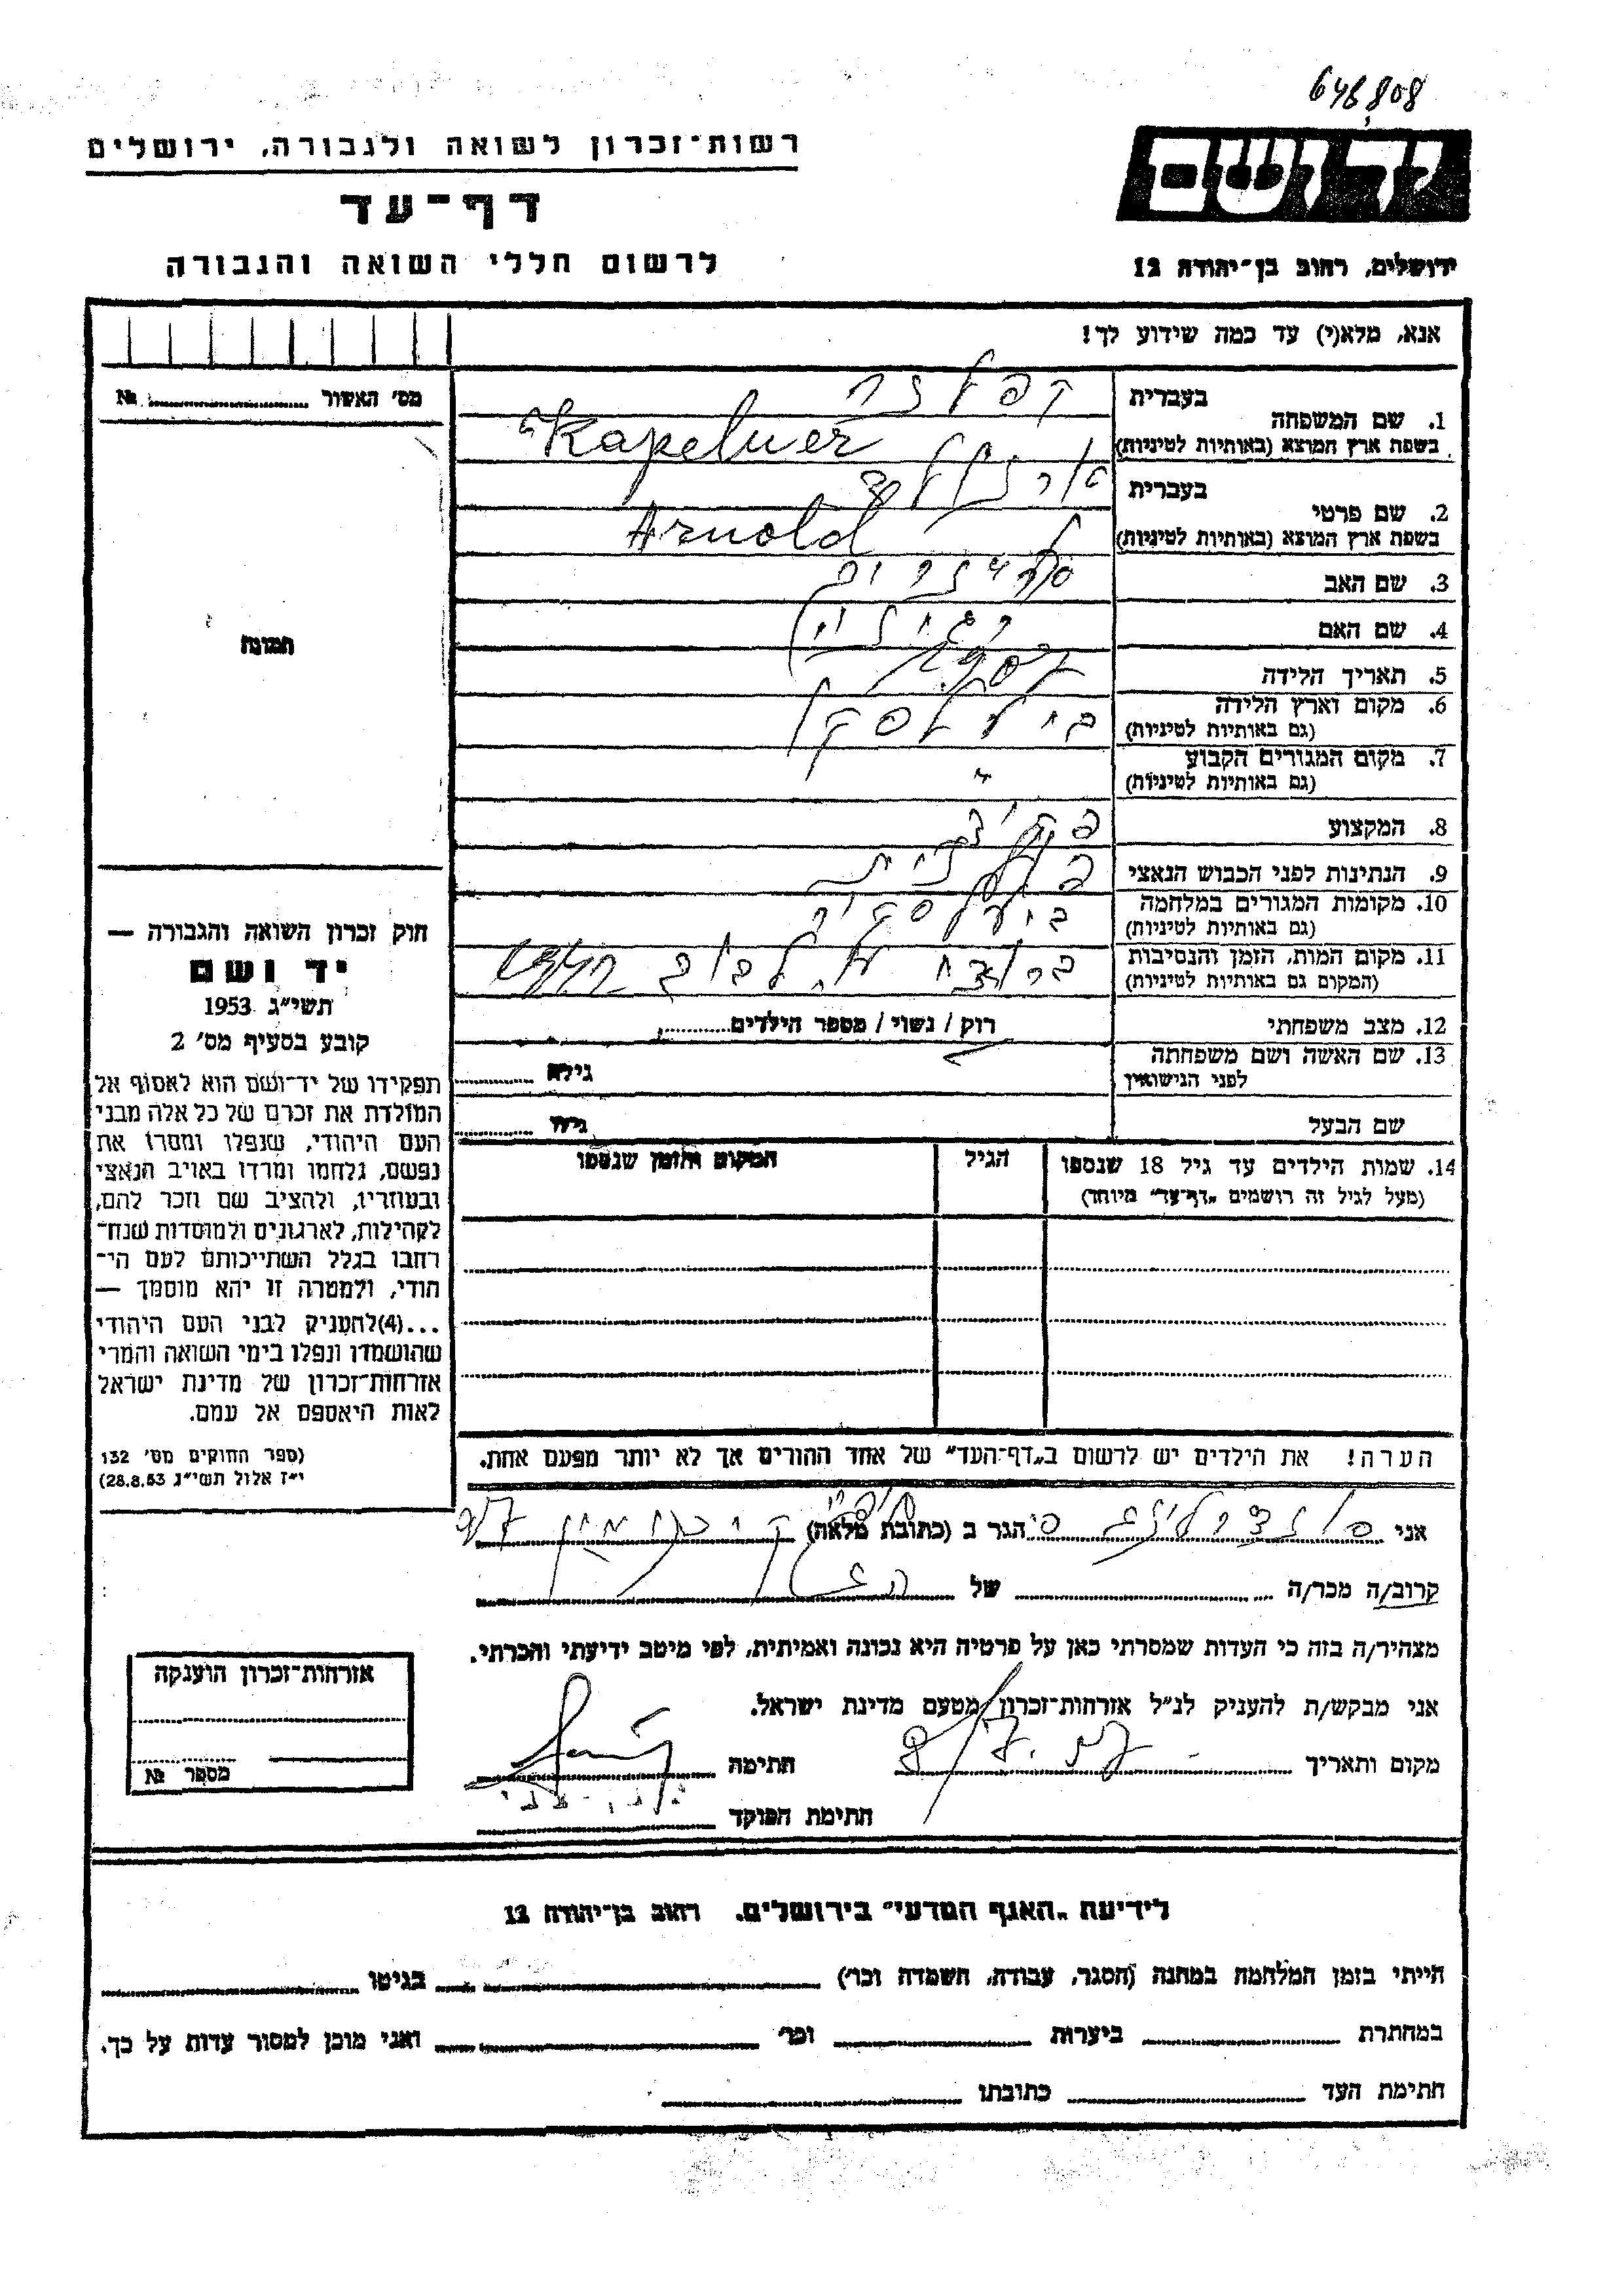 646808
יד ושם
רשות־זכרון לשואה ולגבורה, ירושלים
דף־עד
לרשום חללי השואה והגבורה
ירושלים, רחוב בן־יהודה 12
אנא, מלא(י) עד כמה שידוע לך!
מס׳ האשור № 
תמונה
1. שם המשפחה
בעברית קפלנר
בשפת ארץ המוצא (באותיות לטיניות) Kapelner
2. שם פרטי
בעברית ארנולד
בשפת ארץ המוצא (באותיות לטיניות) Arnold
3. שם האב
4. שם האם
5. תאריך הלידה
6. מקום וארץ הלידה
(גם באותיות לטיניות)
7. מקום המגורים הקבוע
(גם באותיות לטיניות) "
8. המקצוע
9. הנתינות לפני הכבוש הנאצי פולנית
10. מקומות המגורים במלחמה
(גם באותיות לטיניות)
11. מקום המות, הזמן והנסיבות
(המקום גם באותיות לטיניות)
12. מצב משפחתי רוק / נשוי / מספר הילדים
13. שם האשה ושם משפחתה
לפני הנישואין גילה
שם הבעל גילו
14. שמות הילדים עד גיל 18 שנספו הגיל המקום והזמן שנספו
(מעל לגיל זה רושמים „דף־עד" מיוחד)
הערה! את הילדים יש לרשום ב„דף־העד" של אחד ההורים אך לא יותר מפעם אחת.
חוק זכרון השואה והגבורה —
יד ושם
תשי״ג 1953
קובע בסעיף מס׳ 2
תפקידו של יד־ושם הוא לאסוף אל
המולדת את זכרם של כל אלה מבני
העם היהודי, שנפלו ומסרו את
נפשם, נלחמו ומרדו באויב הנאצי
ובעוזריו, ולהציב שם וזכר להם,
לקהילות, לארגונים ולמוסדות שנח־
רחבו בגלל השתייכותם לעם הי־
הודי, ולמטרה זו יהא מוסמך —
...(4)להעניק לבני העם היהודי
שהושמדו ונפלו בימי השואה והמרי
אזרחות־זכרון של מדינת ישראל
לאות היאספם אל עמם.
(ספר החוקים מס׳ 132
י״ז אלול תשי״ג 28.8.53)
אני הגר ב (כתובת מלאה)
קרוב/ה מכר/ה של
מצהיר/ה בזה כי העדות שמסרתי כאן על פרטיה היא נכונה ואמיתית, לפי מיטב ידיעתי והכרתי.
אני מבקש/ת להעניק לנ״ל אזרחות־זכרון מטעם מדינת ישראל.
מקום ותאריך 8/7.57 חתימה
חתימת הפוקד
אזרחות־זכרון הוענקה
מספר №
לידיעת „האגף המדעי" בירושלים, רחוב בן־יהודה 12
הייתי בזמן המלחמה במחנה (הסגר, עבודה, השמדה וכו׳) בגיטו
במחתרת ביערות וכו׳ ואני מוכן למסור עדות על כך.
חתימת העד כתובתו